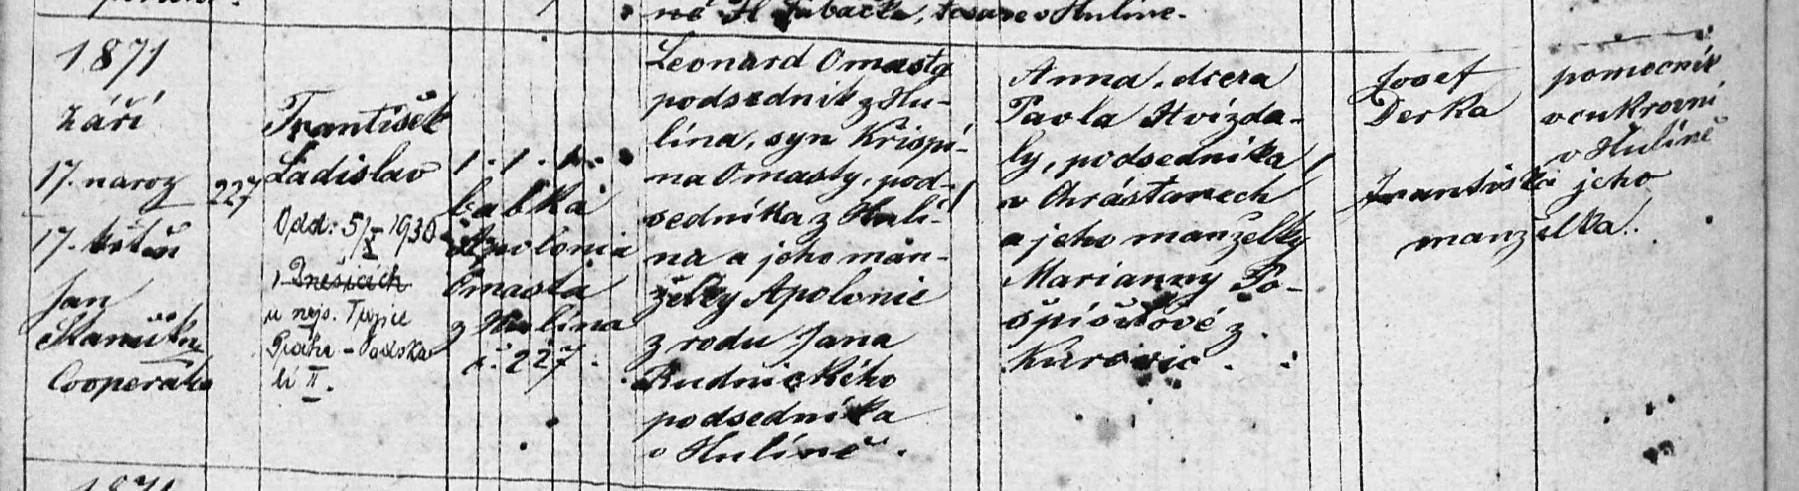 né H. Jubačka, tesaře v Hulíně.
1871
Září
17. naroz
17. křtěn
Jan
Cooperator
227
František
Ladislav
Odd: 5/X 1930
v Dnešicích
u nejs. Trojice
Praha - Podska-
lí II.
1. 1. 1.
babka
Apolonia
Omasta
z Hulína
č. 227.
Leonard Omasta
podsedník z Hu-
lína, syn Krispí-
na Omasty, pod-
sedníka z Hulí-
na a jeho man-
želky Apolonie
z rodu Jana
Rudnického
podsedníka
v Hulíně.
Anna, dcera
Pavla Hvízda-
ly, podsedníka
v Chrášťanech
a jeho manželky
Marianny Po-
spíšilové z
Kurovic.
Josef
Derka
Františka jeho
manželka.
pomocník
v cukrovni
v Hulíně
1871